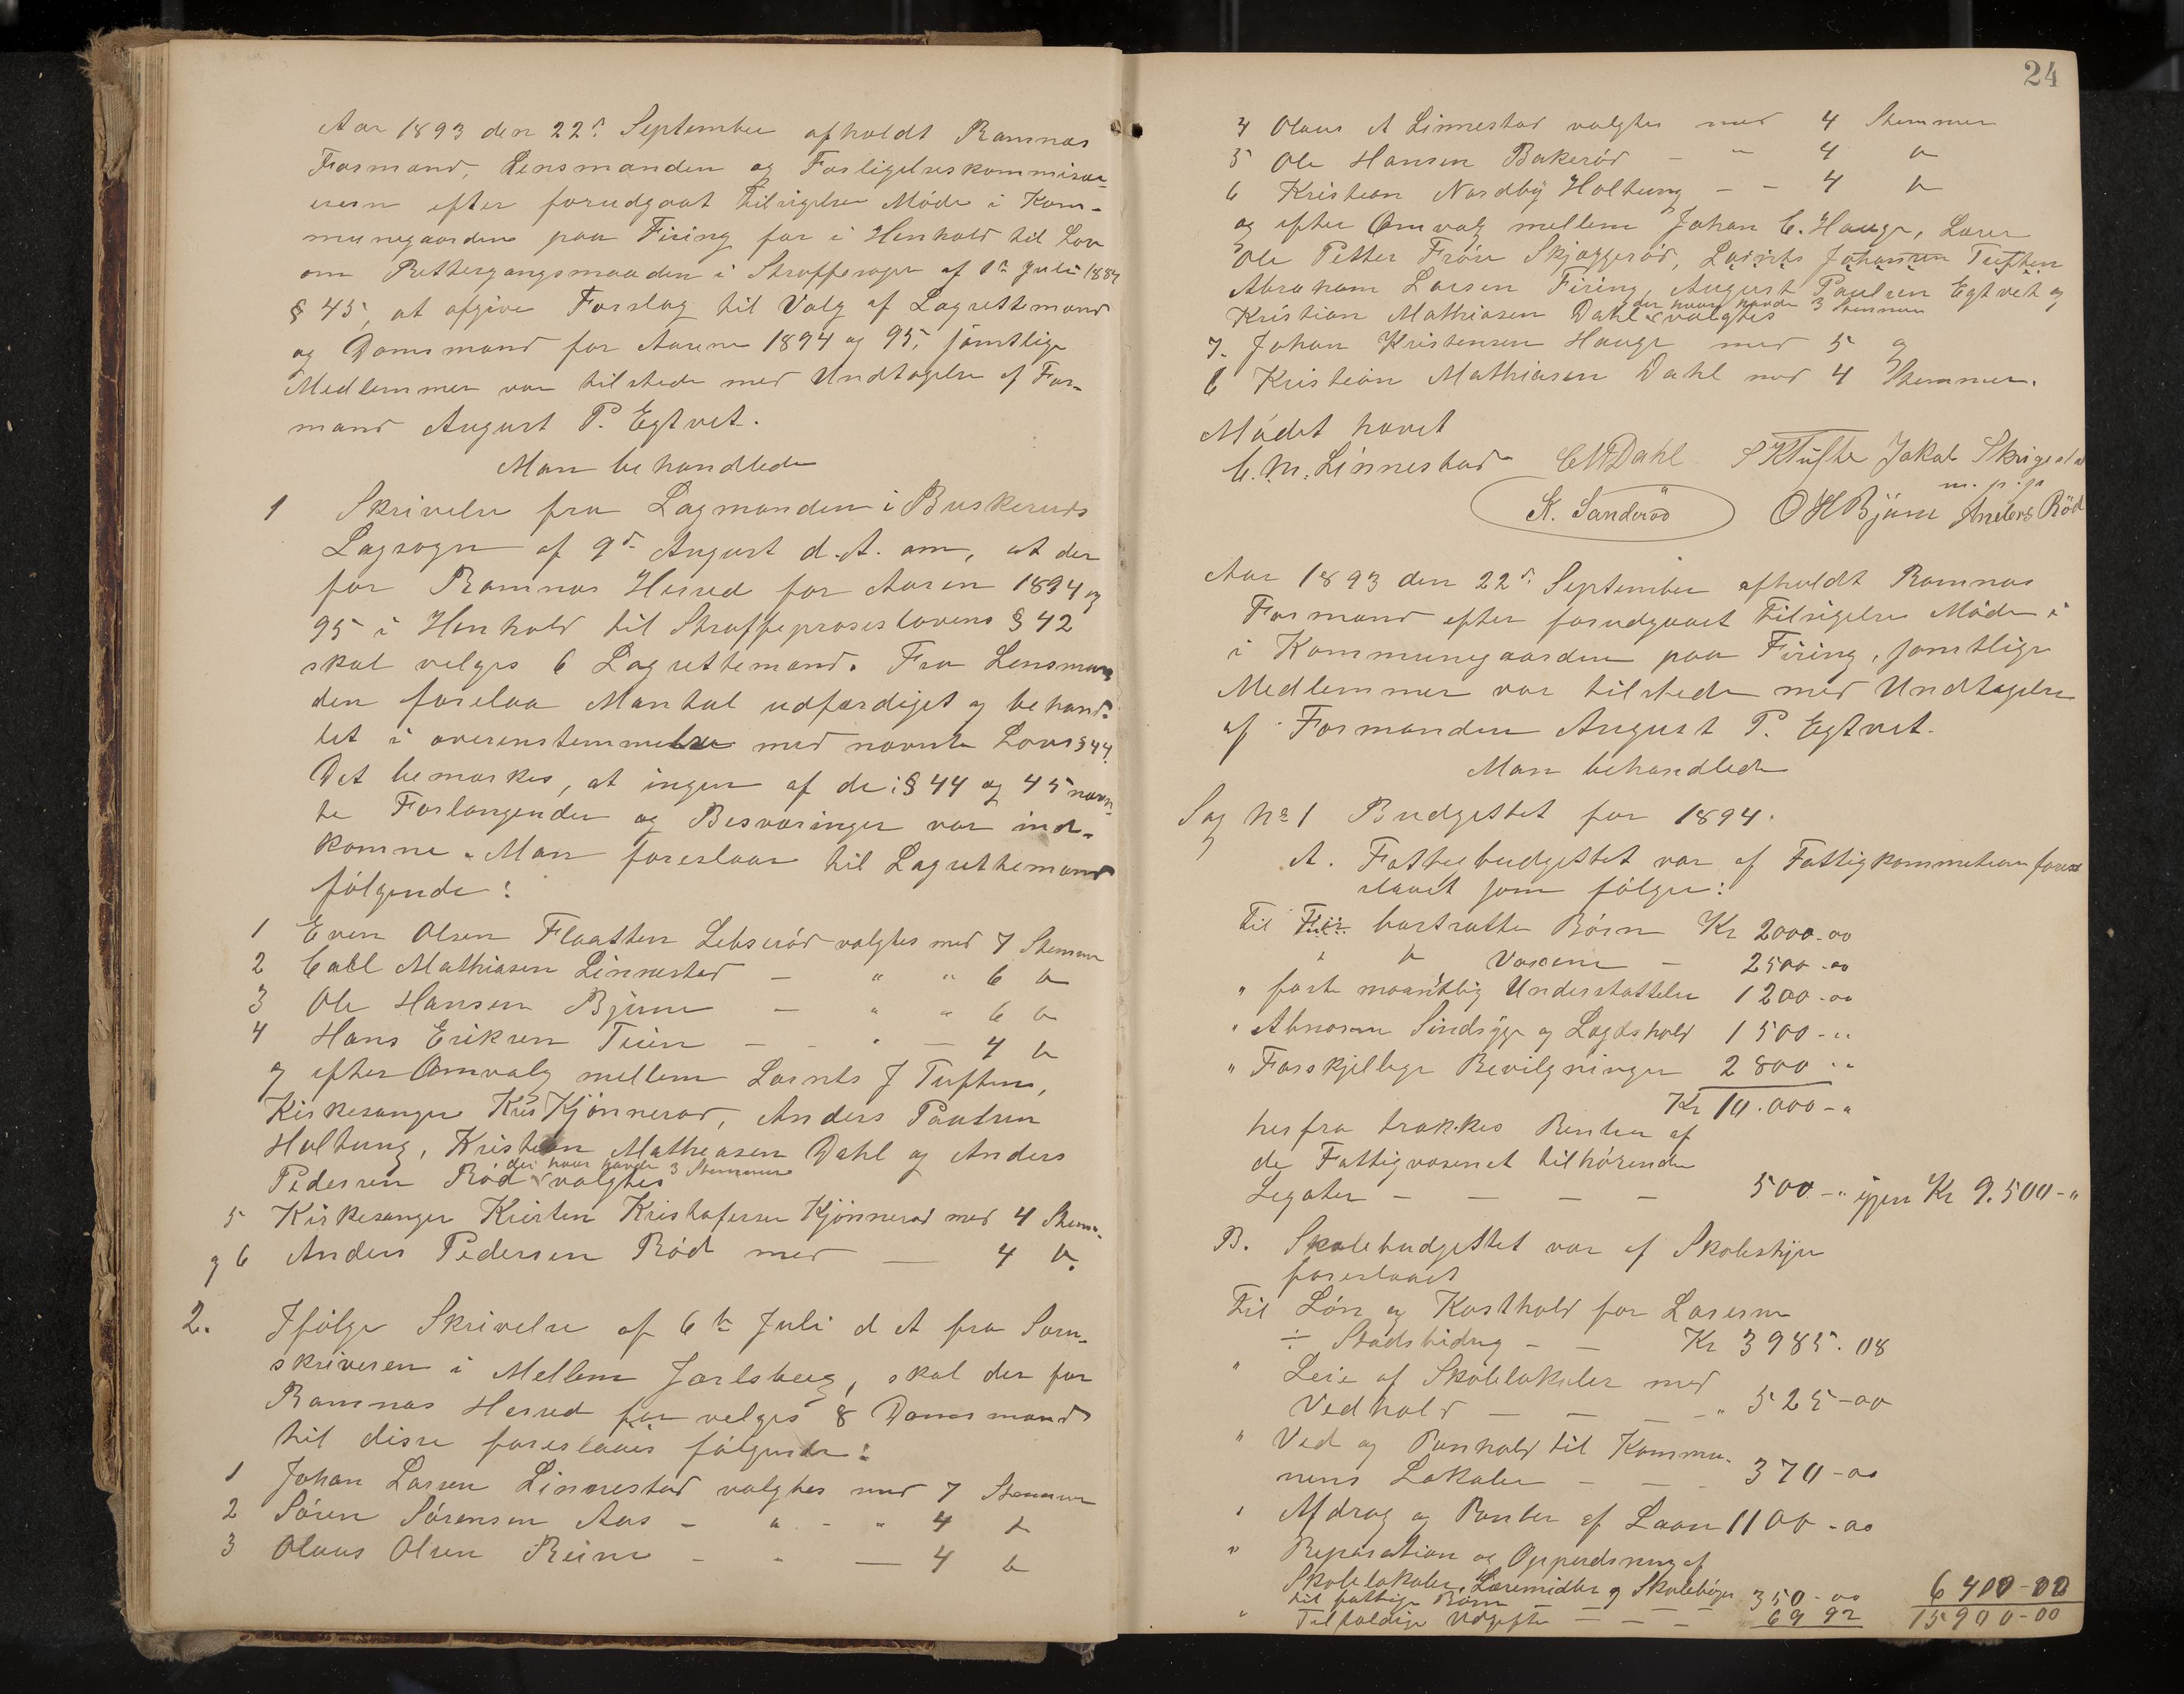 Aar 1893 den 22de September afholdt Ramnæs
Formænd, Lensmanden og Forligelseskommisæ-
rerne efter forudgaat Tilsigelse Møde i Kom-
munegaarden paa Firing for i Henhold til Lov
om Rettergangsmaaden i Straffesager af 1ste Juli 1887
§ 45, at afgive Forslag til Valg af Lagrettemænd
og Domsmænd for Aarene 1894 og 95, samtlige
Medlemmer var tilstede med Undtagelse af For-
mand August P. Egtvet.
Man behandlede
1 Skrivelse fra Lagmanden i Buskeruds
Lagsogn af 9de August d. A. om, at der
for Ramnæs Herred for Aaren 1894 og
95 i Henhold til Straffeproseslovens § 42
skal velges 6 Lagrettemænd. Fra Lensman
den forelaa Mantal udfærdiget og behand-
let i overenstemmelse med nævnte Lovs § 44.
Det bemærkes, at ingen af de i § 44 og 45 nævn-
te Forlangender og Besværinger var ind-
komne. Man foreslaar til Lagrettemænd
følgende:
1 Even Olsen Flaatten Lebserød valgtes med 7 Stemmer
2 Carl Mathiasen Linnestad — " " 6 "
3 Ole Hansen Bjune — " " 6 "
4 Hans Eriksen Teien — - " — 4 "
og efter Omvalg mellem Lærnts J Tuften,
Kirkesanger Kris Kjønnerød, Anders Paulsen
Holtung, Kristian Mathiasen Dahl og Anders
der hver havde 3 Stemmer
Pedersen Rød valgtes
5 Kirkesanger Kristen Kristofersen Kjønnerød med 4 Stem.
og 6 Anders Pedersen Rød med — 4 "
2. Ifølge Skrivelse af 6te Juli d A fra Soren-
skriveren i Mellem Jarlsberg, skal der for
Ramnæs Herred for velges 8 Domsmænd
til disse foreslaaes følgende:
1 Johan Larsen Linnestad valgtes med 7 Stemmer
2 Søren Sørensen Aas - " - " 4 "
3 Olaus Olsen Reine - " — 4 "
24
4 Olaus A Linnestad valgtes med 4 Stemmer
5 Ole Hansen Bakerød - " 4 "
6 Kristian Nordby Holtung - - 4 "
og efter Omvalg mellem Johan C. Hauge, Lærer
Ole Petter Frøse Skjaggerød, Lærnts Johansen Tuften
Abraham Larsen Firing, August Paulsen Egtvet og
der hver havde 3 Stemmer
Kristian Mathiasen Dahl valgtes
7. Johan Kristensen Hauge med 5 og
8 Kristian Mathiasen Dahl med 4 Stemmer.
Mødet hævet
C. M. Linnestad CMDahl S K Tufte Jakob Skrigestad
m. p. p.
K. Sanderød O H Bjune Anders Röd
Aar 1893 den 22de September afholdt Ramnæs
Formænd efter forudgaaet Tilsigelse Møde i
i Kommunegaarden paa Firing, samtlige
Medlemmer var tilstede med Undtagelse
af Formanden August P. Egtvet.
Man behandlede
Sag No 1 Budgettet for 1894.
A. Fattigbudgettet var af Fattigkommetionen fore
slaaet som følger:
Til bortsatte Børn Kr 2000.00
" " Voxene — 2500.00
" faste maantlig Understøttelse 1200.00
" Abnorme Sindsyge og Lægdshold 1500-"
" Forskjellige Bevilgninger 2800 "
Kr 10.000-"
herfra trækkes Renten af
de Fattigvæsenet tilhørende
Legater — — — — 500-" igjen Kr 9.500-"
B. Skolebudgettet var af Skolestyre
foreslaaet
Til Løn og Kosthold for Lærerne
÷ Stadsbidrag - — Kr 3985.08
" Leie af Skolelokaler med
Vedhold — — — " 525-00
" Ved og Renhold til Kommu-
nens Lokaler - — 370-00
" Afdrag og Renter af Laan 1100-00
" Reparation og Oppudsning af
Skolelokaler, Læremidler og Skolebøger
til fattige Børn — — — 350-00 6400-00
" Tilfældige Udgifter — — — 69 92 15900-00